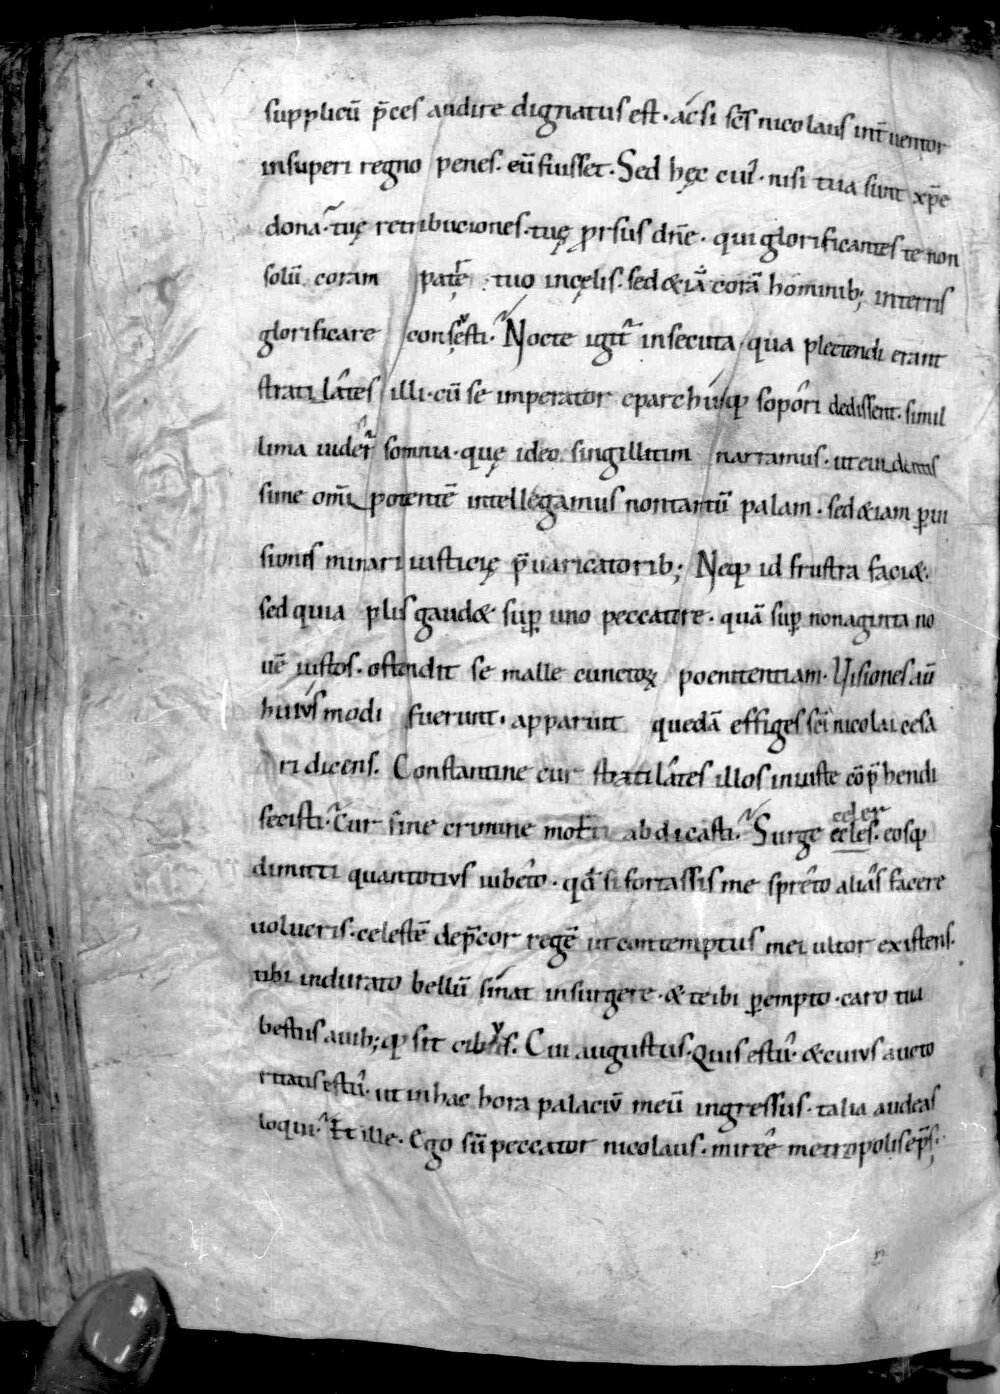 supplicū p̄ces audire dignatus est. ac si sc̄s nicolaus int̄uentor
in superi regno penes. eū fuisset. Sed hęc cui. nisi tua sunt xp̄e
dona. tuę retribuciones. tuę ꝓrsus dn̄e. qui glorificantes te non
solū coram patrē tuo in cęlis. sed & iā corā hominib; in terris
glorificare consęsti. Nocte igit̄ insecuta. qua plectendi erant
stratilates illi. cū se imperator eparchusq; sopori dedissent. simil
lima uider̄ somnia. quę ideo singillitim narramus. ut euidentis
sime om̄i potentē intellegamus non tantū palam. sed & iam ꝑ ui
siones mirari iusticię p̄uaricatorib; Neq; id frustra faci&.
sed quia plus gaud& suꝑ uno peccatore. quā suꝑ nonaginta no
uē iustos. ostendit se malle cunctoꝝ poenitentiam. Visiones aū
huiusmodi fuerunt. apparuit quedā effiges sc̄i nicolai cesa
ri dicens. Constantine cur stratilates illos iniuste cōp̄hendi
fecisti. Cur sine crimine morti abdicasti. Surge celer eceles. eosq;
dimitti quantotius iubeto. qđ si fortassis me spreto alias facere
uolueris. celestē dep̄cor regē ut contemptus mei ultor existens.
tibi indurato bellū sinat insurgere. & te ibi ꝑempto. caro tua
bestiis auib;q; sit cibus. Cui augustus. Quis es tu. & cuius aucto
ritatis es tu. ut in hac hora palaciū meū ingressus. talia audeas
loqui. Et ille. Ego sū peccator nicolaus. mirrē metropolis ep̄s.